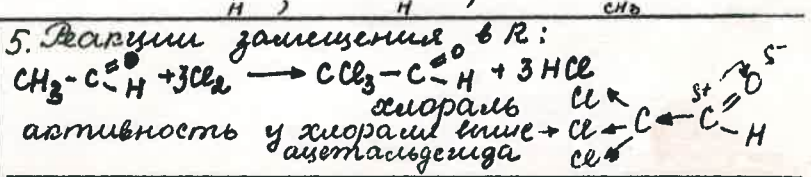 H H CH3
5. Реакции замещения в R:
CH3-C=O-H + 3Cl2 ⟶ CCl3-C=O-H + 3HCl
хлораль
активность у хлораля выше →
ацетальдегида
Cl Cl Cl C C δ+ O δ- H